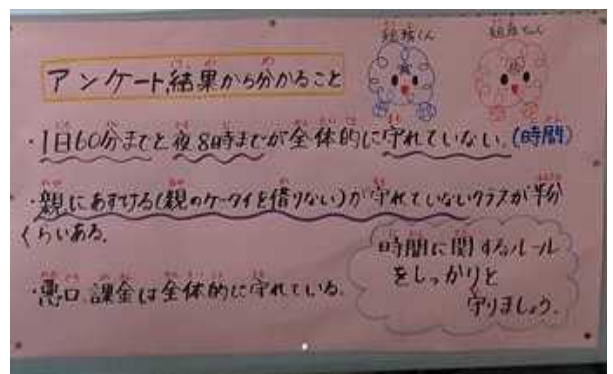 アンケート結果から分かること
・1日60分までと夜8時までが全体的に守れていない。(時間)
・親にあずける(親のケータイを借りない)が守れていないクラスが半分
くらいある。
・悪口、課金は全体的に守れている。
時間に関するルール
をしっかりと
守りましょう。